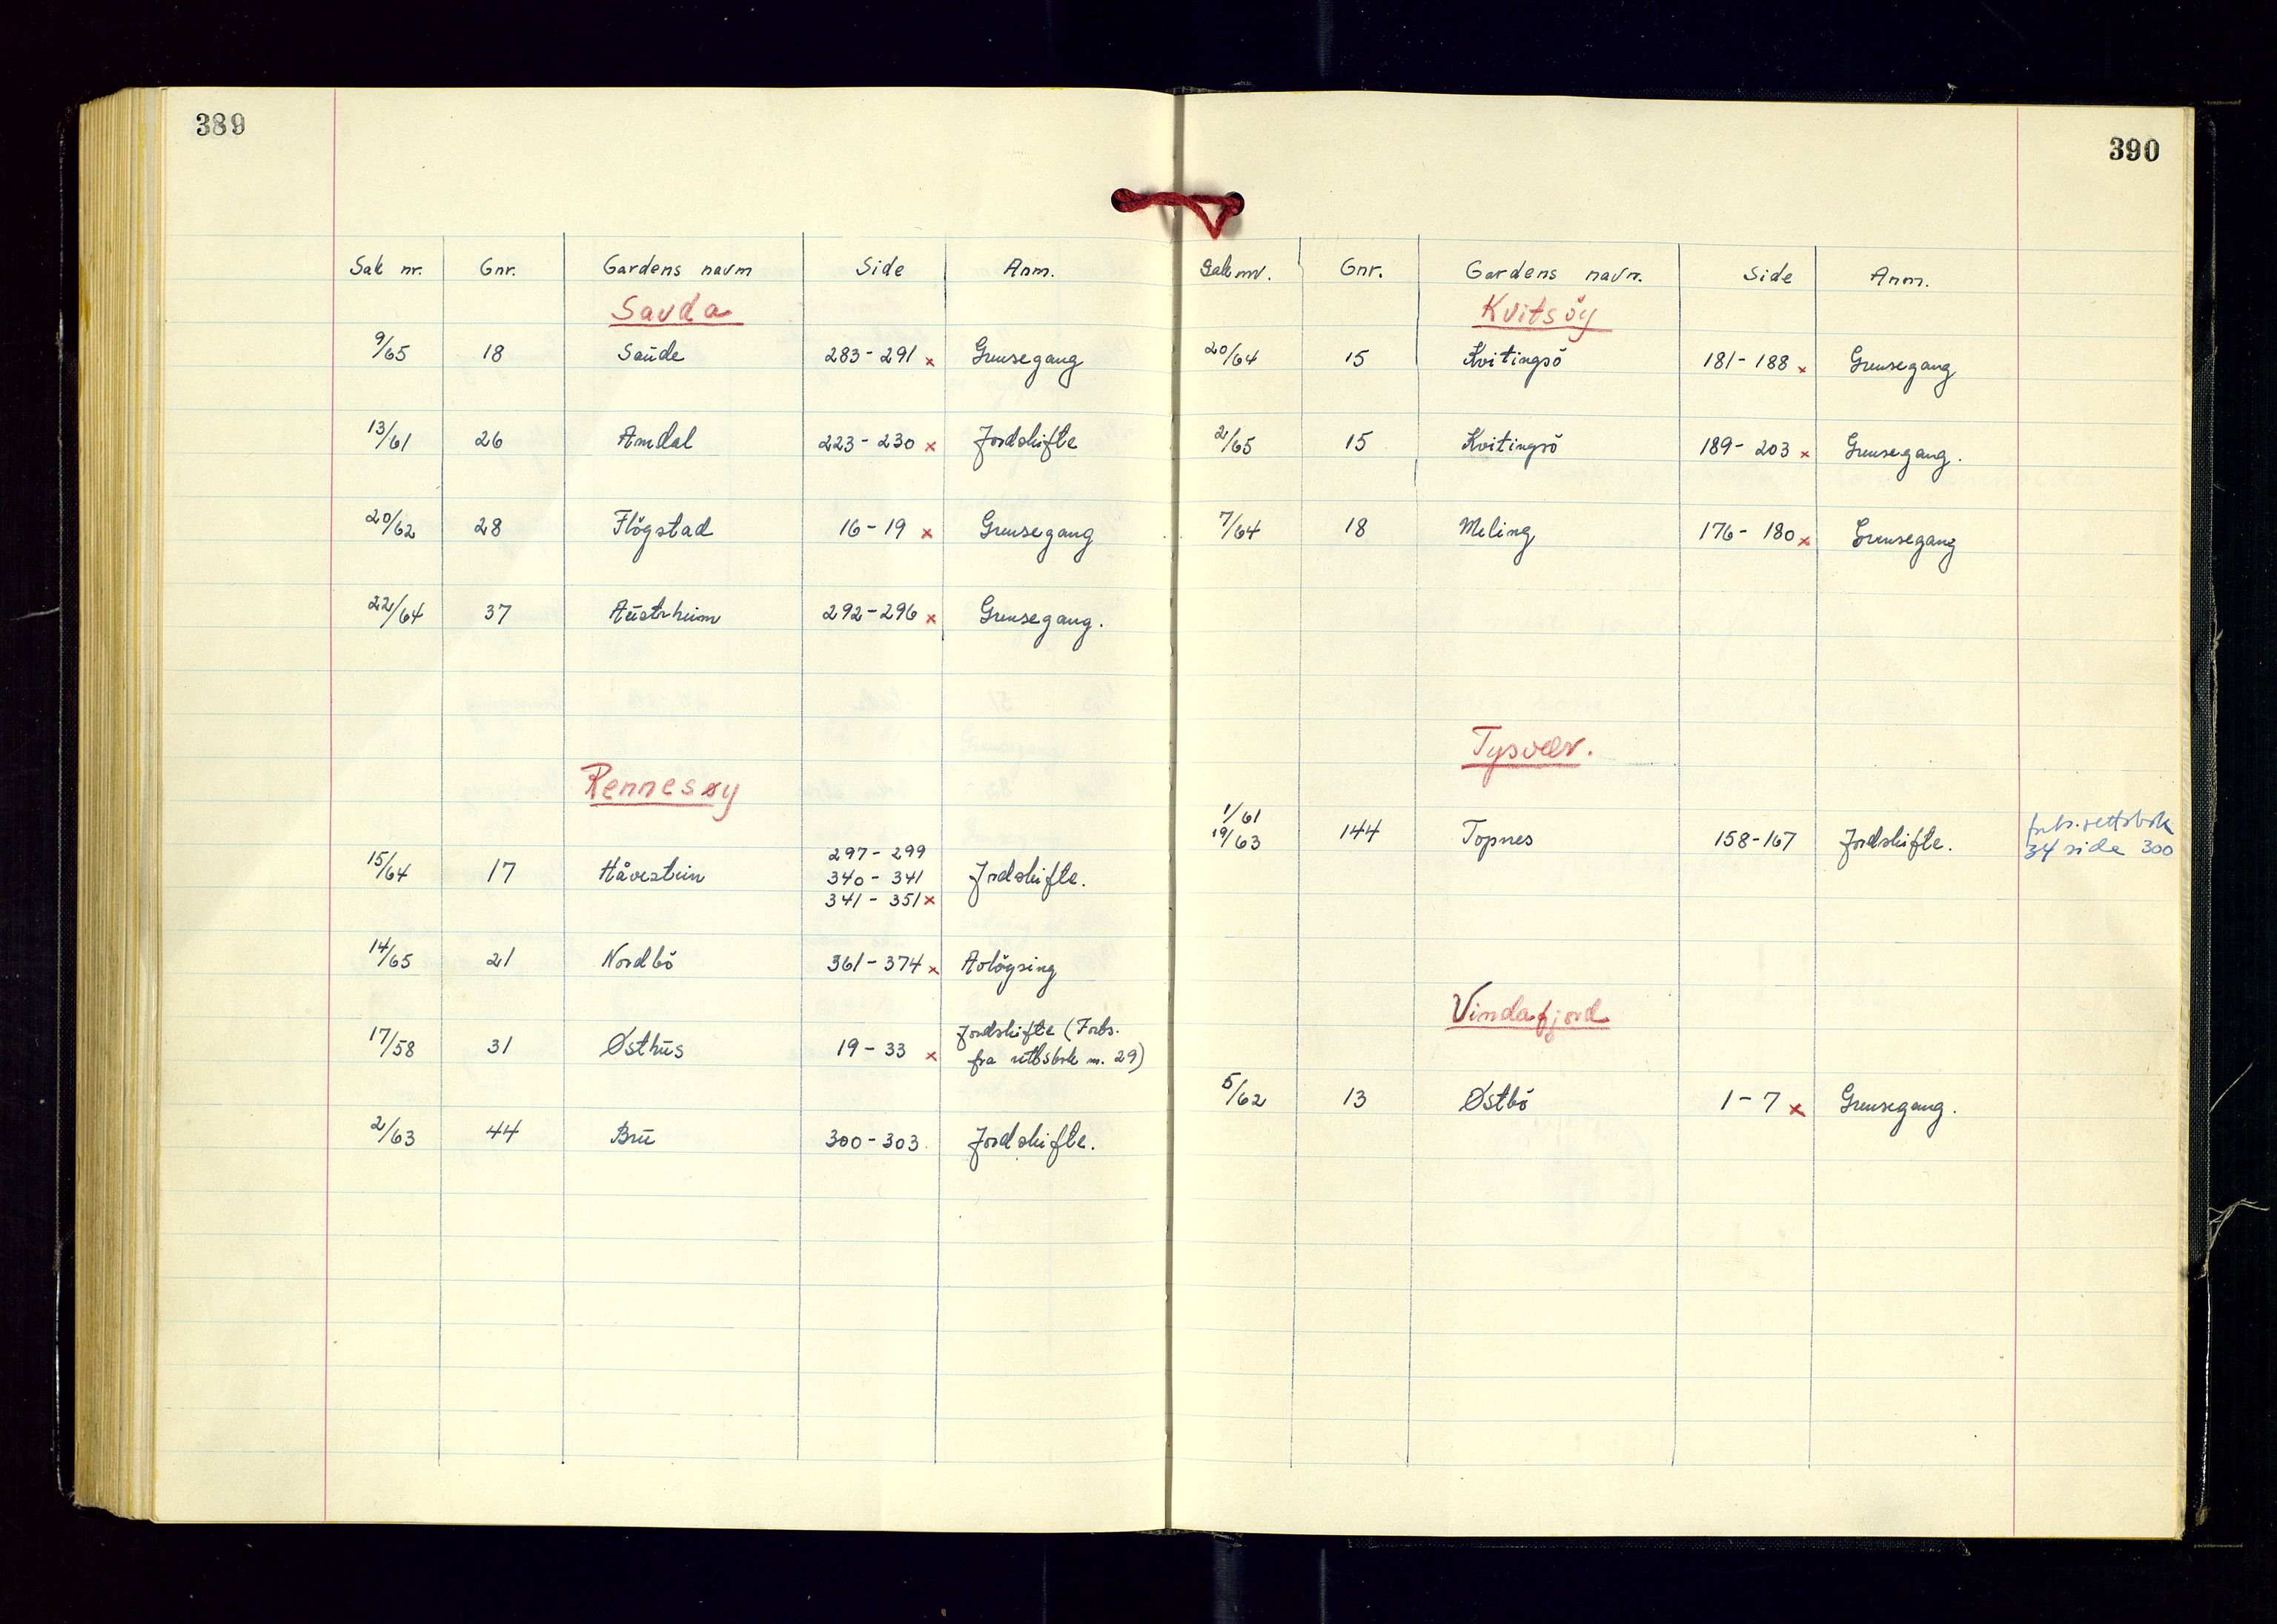 389
Sak nr. Gnr. Gardens navn Side Anm.
Sauda
9/65 18 Saude 283-291 x Grensegang
13/61 26 Amdal 223-230 x Jordskifte
20/62 28 Flögstad 16-19 x Grensegang
22/64 37 Austrheim 292-296 x Grensegang.
Rennesøy
15/64 17 Håvestein 297-299
340-341 Jordskifte.
341-351 x
14/65 21 Nordbö 361-374 x Avlöysing
17/58 31 Østhus 19-33 x Jordskifte (Forts.
fra rettsbok nr. 29)
2/63 44 Bru 300-303 Jordskifte.
390
Sak nr. Gnr. Gardens navn. Side Anm.
Kvitsöy
20/64 15 Kvitingsö 181-188 x Grensegang
2/65 15 Kvitingsö 189-203 x Grensegang.
7/64 18 Meling 176-180 x Grensegang
Tysvær.
1/61
19/63 144 Topnes 158-167 Jordskifte.
forts. rettsbok
34 side 300
Vindafjord
5/62 13 Østbö 1-7 x Grensegang.